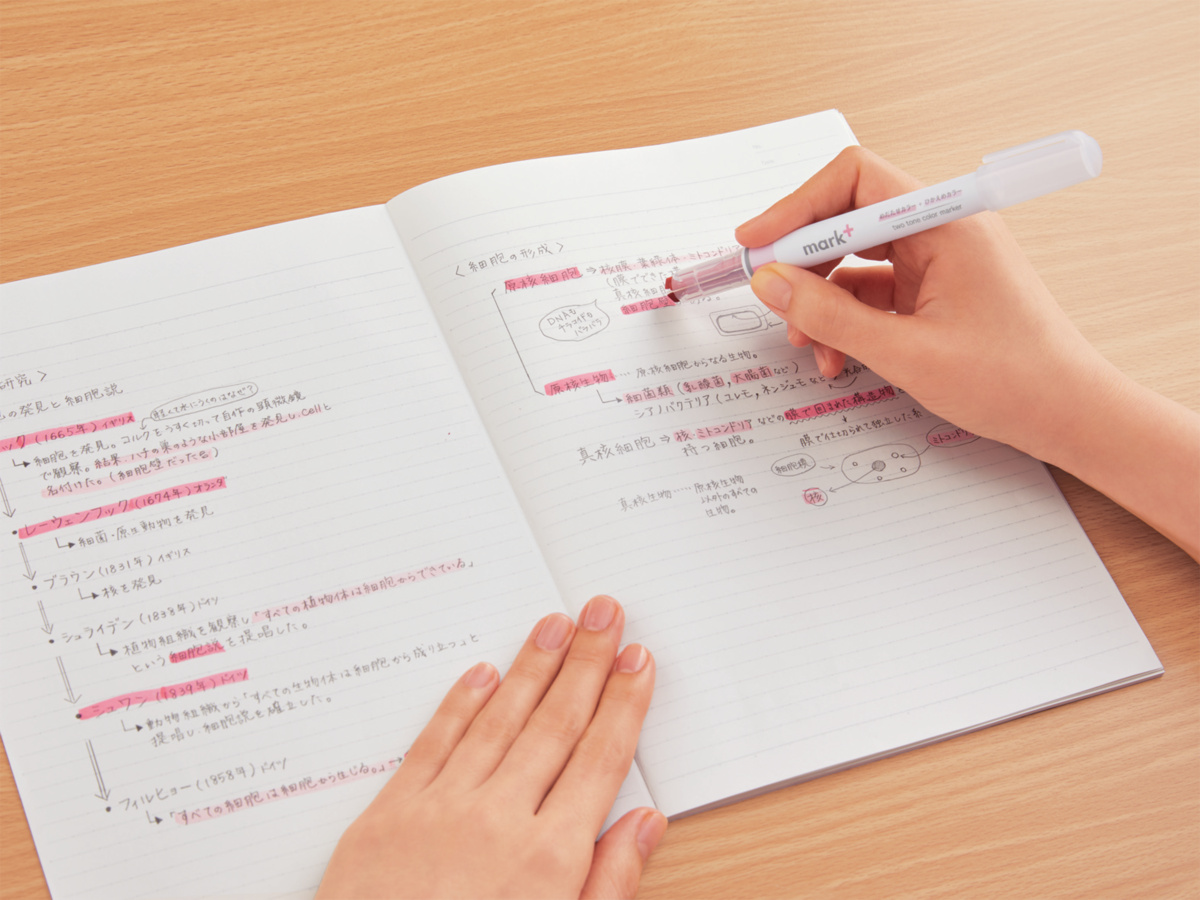 研究 〉
の発見と細胞説
軽くて水にうくのはなぜ?
ック (1665年) イギリス
細胞を発見。コルクをうすく切って自作の顕微鏡
で観察。結果、ハチの巣のような小部屋を発見しcellと
名付けた。(細胞壁だった)
・レーウェンフック (1674年) オランダ
細菌・原生動物を発見
・ブラウン (1831年) イギリス
核を発見
・シュライデン (1838年) ドイツ
植物組織を観察し「すべての植物体は細胞からできている」
という細胞説を提唱した。
・シュワン (1839年) ドイツ
動物組織から「すべての生物体は細胞から成り立つ」と
提唱し細胞説を確立した。
・フィルヒョー (1858年) ドイツ
「すべての細胞は細胞から生じる。」
〈 細胞の形成 〉
原核細胞 ⇒ 核膜・葉緑体・ミトコンドリア
(膜でできた
真核細胞
細胞
DNAも
バラバラ
原核生物…… 原核細胞からなる生物。
細菌類 (乳酸菌, 大腸菌など)
シアノバクテリア (ユレモ, ネンジュモなど)
真核細胞 ⇒ 核・ミトコンドリアなどの膜で囲まれた構造物
持つ細胞。
膜で仕切られて独立した系
細胞膜
ミトコンドリア
核
真核生物…… 原核生物
以外のすべての
生物。
mark+
two tone color marker